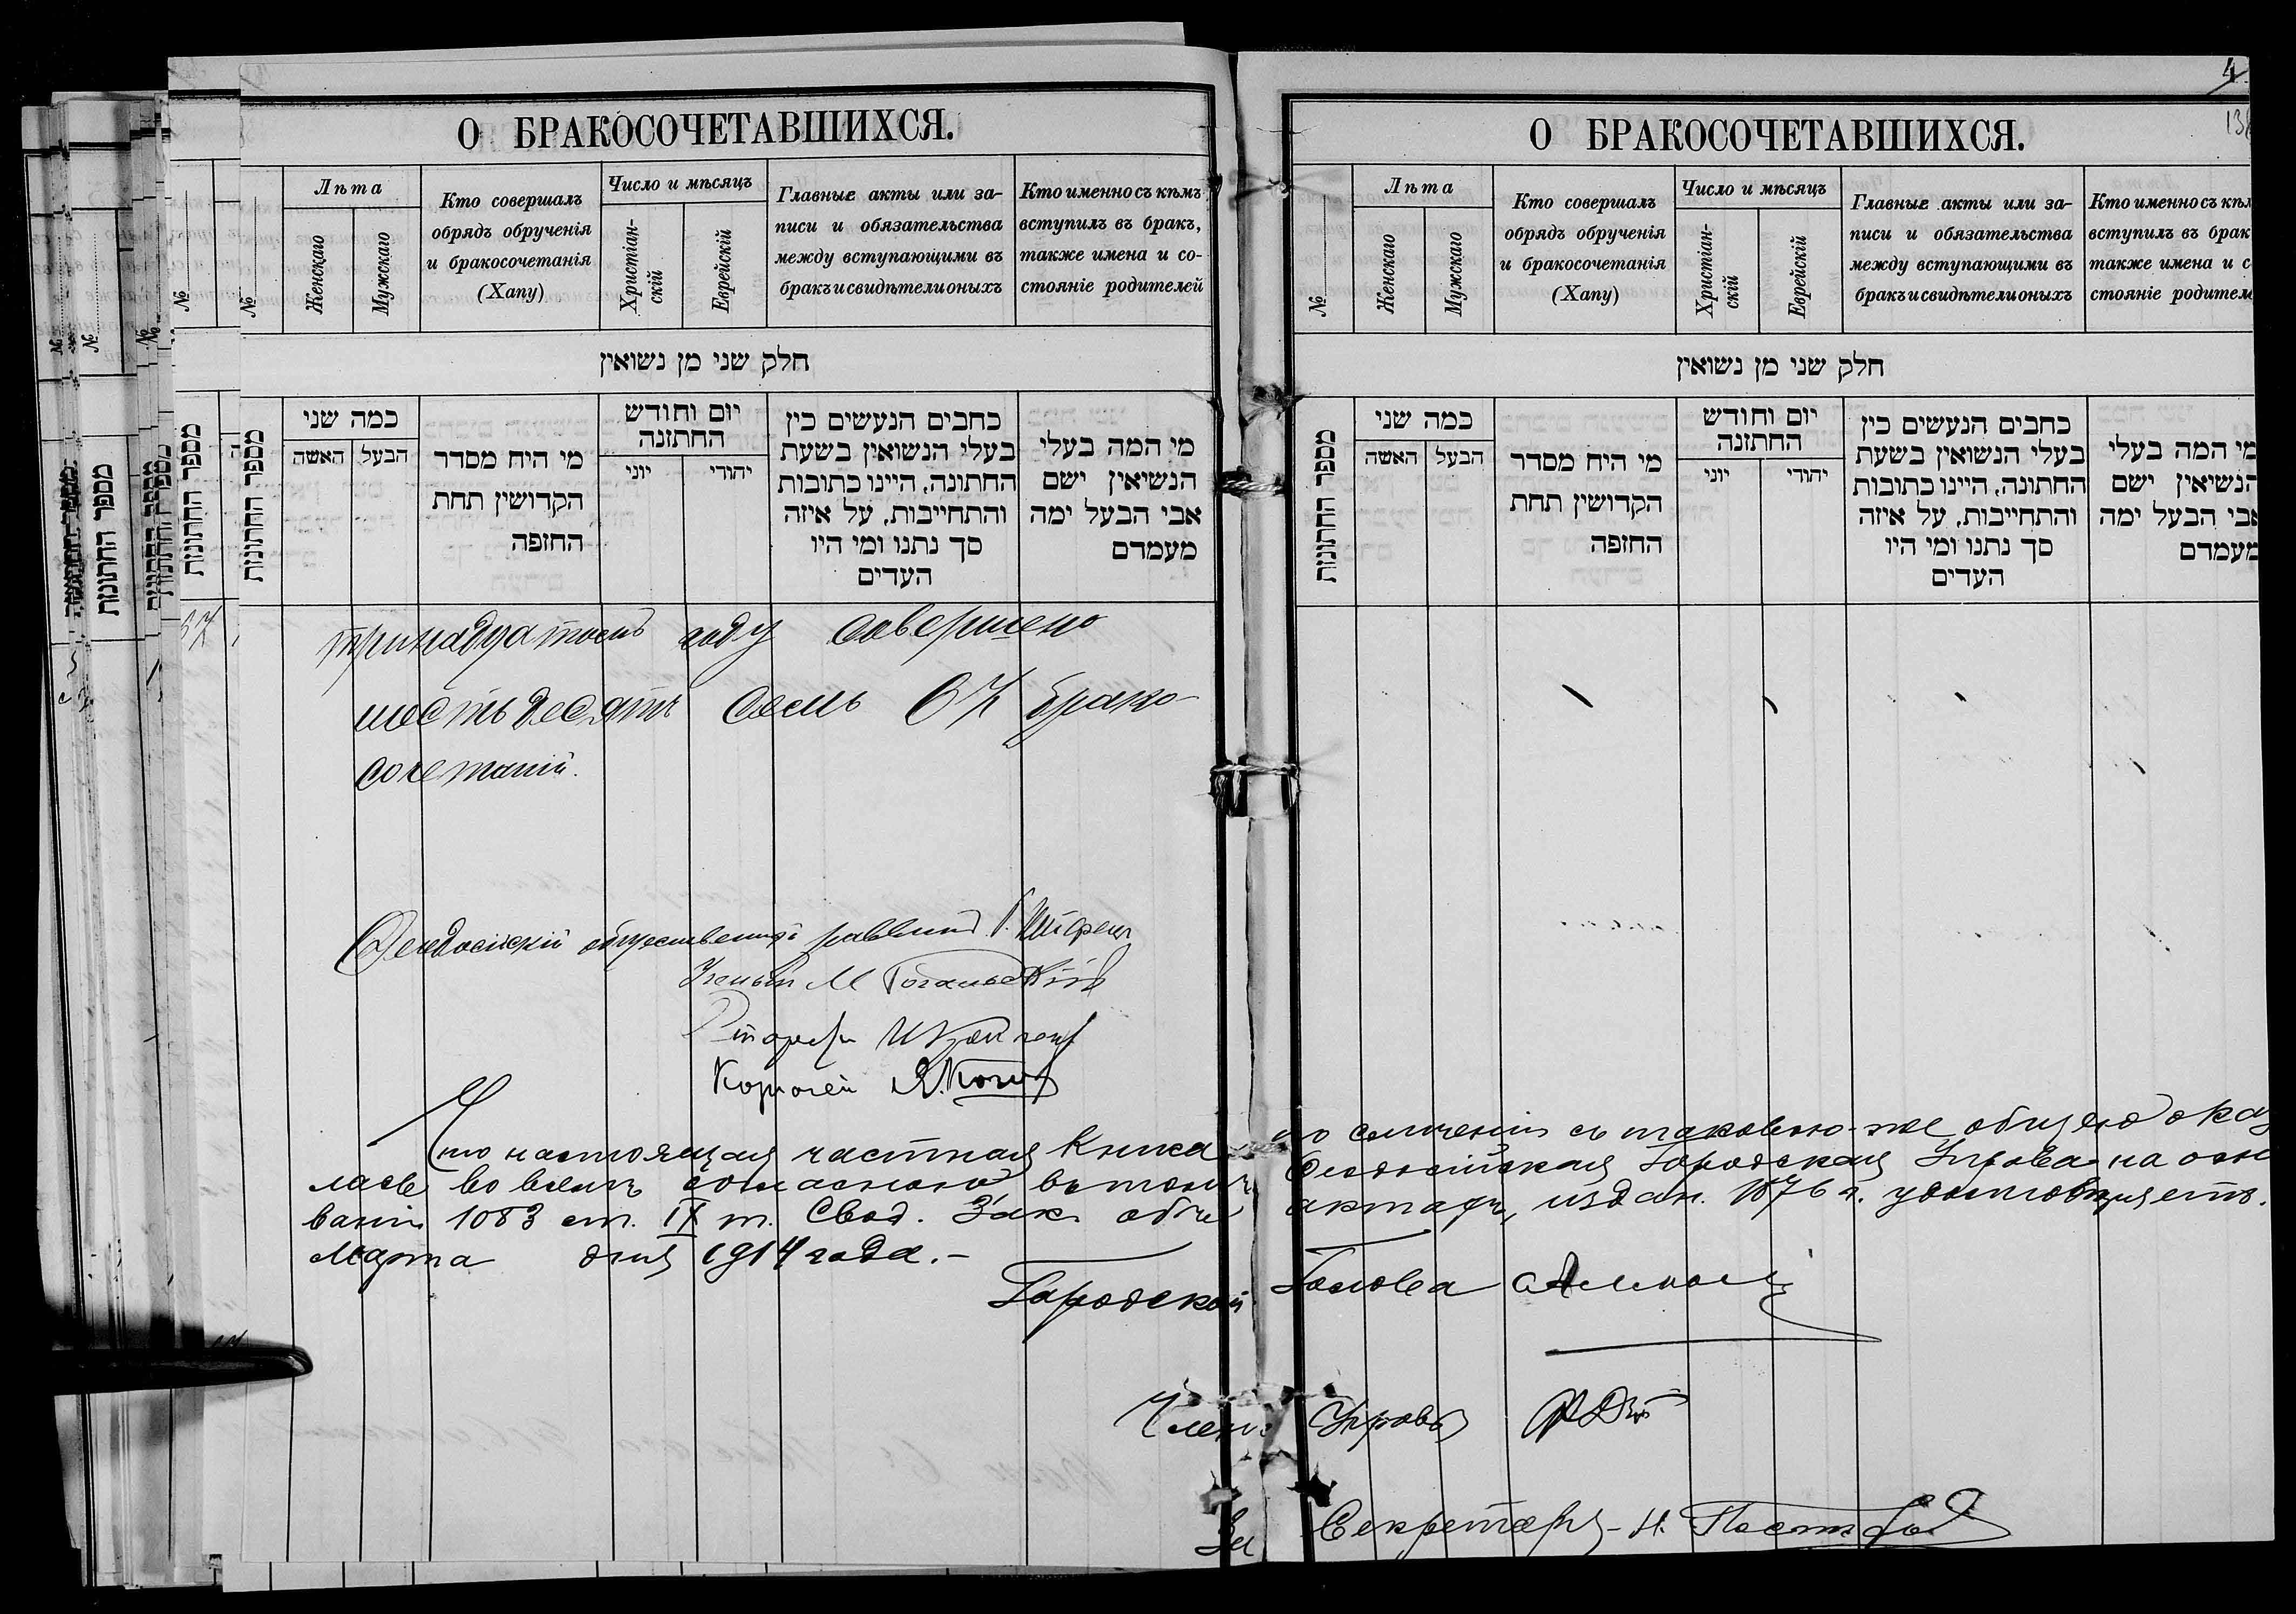 О БРАКОСОЧЕТАВШИХСЯ.
№
Лѣта
Женскаго
Мужскаго
Кто совершалъ
обрядъ обрученія
и бракосочетанія
(Хапу)
Число и мѣсяцъ
Христіан-
скій
Еврейскій
Главные акты или за-
писи и обязательства
между вступающими въ
бракъ и свидѣтели оныхъ
Кто именно съ кѣмъ
вступилъ въ бракъ,
также имена и со-
стояніе родителей
חלק שני מן נשואין
מספר החתונות
כמה שני
הבעל
האשה
מי היח מסדר
הקדושין תחת
החזפה
יום וחודש
החתזנה
יוני
יהודי
כחבים הנעשים כין
בעלי הנשואין בשעת
החתונה, היינו כתובות
והתחייבות, על איזה
סך נתנו ומי היו
העדים
מי המה בעלי
הנשיאין ישם
אבי הבעל ימה
מעמדם
тринадцатомъ году совершено
шестьдесятъ семь 67 брако-
сочетаній.
Ѳеодосійскій общественный раввинъ
Ученый М
Староста
Казначей
Что настоящая частная книга по сличеніи съ таковою-же общею оказ
лась во всемъ согласною въ томъ Ѳеодосійская Городская Управа на осно
ваніи 1083 ст. IX т. Свод. Зак. объ актахъ, издан. 1876 г. удостовѣряетъ.
Марта дня 1914 года.-
Городской Голова
Членъ Управы
За Секретаря - Н.
О БРАКОСОЧЕТАВШИХСЯ.
4
138
№
Лѣта
Женскаго
Мужскаго
Кто совершалъ
обрядъ обрученія
и бракосочетанія
(Хапу)
Число и мѣсяцъ
Христіан-
скій
Еврейскій
Главные акты или за-
писи и обязательства
между вступающими въ
бракъ и свидѣтели оныхъ
Кто именно съ кѣм
вступилъ въ брак
также имена и с
стояніе родител
חלק שני מן נשואין
מספר החתונות
כמה שני
הבעל
האשה
מי היח מסדר
הקדושין תחת
החזפה
יום וחודש
החתזנה
יוני
יהודי
כחבים הנעשים כין
בעלי הנשואין בשעת
החתונה, היינו כתובות
והתחייבות, על איזה
סך נתנו ומי היו
העדים
מי המה בעלי
הנשיאין ישם
אבי הבעל ימה
מעמדם